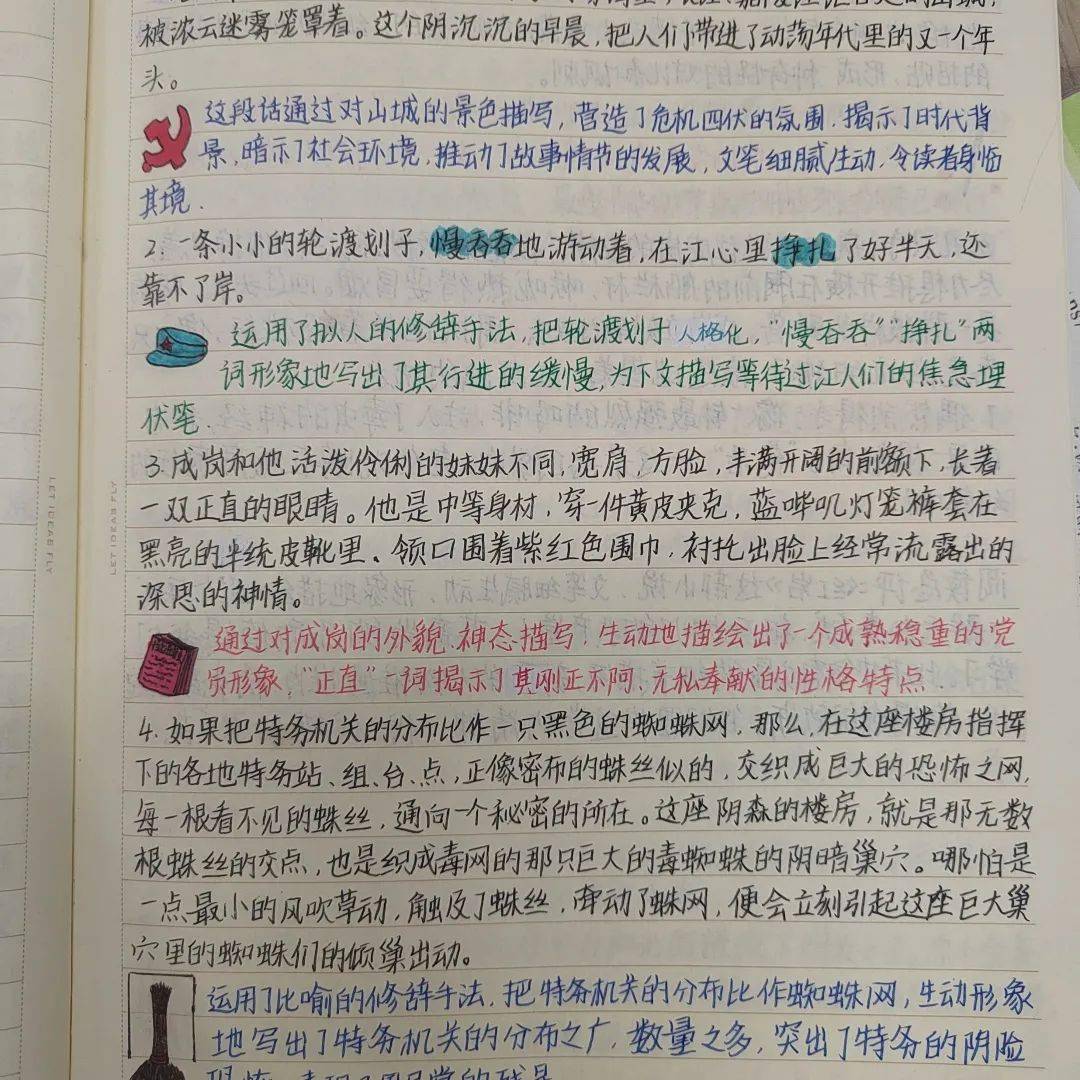 被浓云迷雾笼罩着。这个阴沉沉的早晨,把人们带进了动荡年代里的又一个年
头。
这段话通过对山城的景色描写,营造了危机四伏的氛围.揭示了时代背
景,暗示了社会环境,推动了故事情节的发展,文笔细腻生动.令读者身临
其境.
2.一条小小的轮渡划子,慢吞吞地游动着,在江心里挣扎了好半天,还
靠不了岸。
运用了拟人的修辞手法,把轮渡划子人格化,“慢吞吞”“挣扎”两
词形象地写出了其行进的缓慢,为下文描写等待过江人们的焦急埋
伏笔.
3.成岗和他活泼伶俐的妹妹不同,宽肩,方脸,丰满开阔的前额下,长着
一双正直的眼睛。他是中等身材,穿一件黄皮夹克,蓝哔叽灯笼裤套在
黑亮的半统皮靴里、领口围着紫红色围巾,衬托出脸上经常流露出的
深思的神情。
通过对成岗的外貌、神态描写,生动地描绘出了一个成熟稳重的党
员形象,“正直”一词揭示了其刚正不阿、无私奉献的性格特点.
4.如果把特务机关的分布比作一只黑色的蜘蛛网,那么,在这座楼房指挥
下的各地特务站、组、台、点,正像密布的蛛丝似的,交织成巨大的恐怖之网,
每一根看不见的蛛丝,通向一个秘密的所在。这座阴森的楼房,就是那无数
根蛛丝的交点,也是织成毒网的那只巨大的毒蜘蛛的阴暗巢穴。哪怕是
一点最小的风吹草动,触及了蛛丝,牵动了蛛网,便会立刻引起这座巨大巢
穴里的蜘蛛们的倾巢出动。
运用了比喻的修辞手法,把特务机关的分布比作蜘蛛网,生动形象
地写出了特务机关的分布之广,数量之多,突出了特务的阴险
LET IDEAS FLY
LET IDEAS FLY